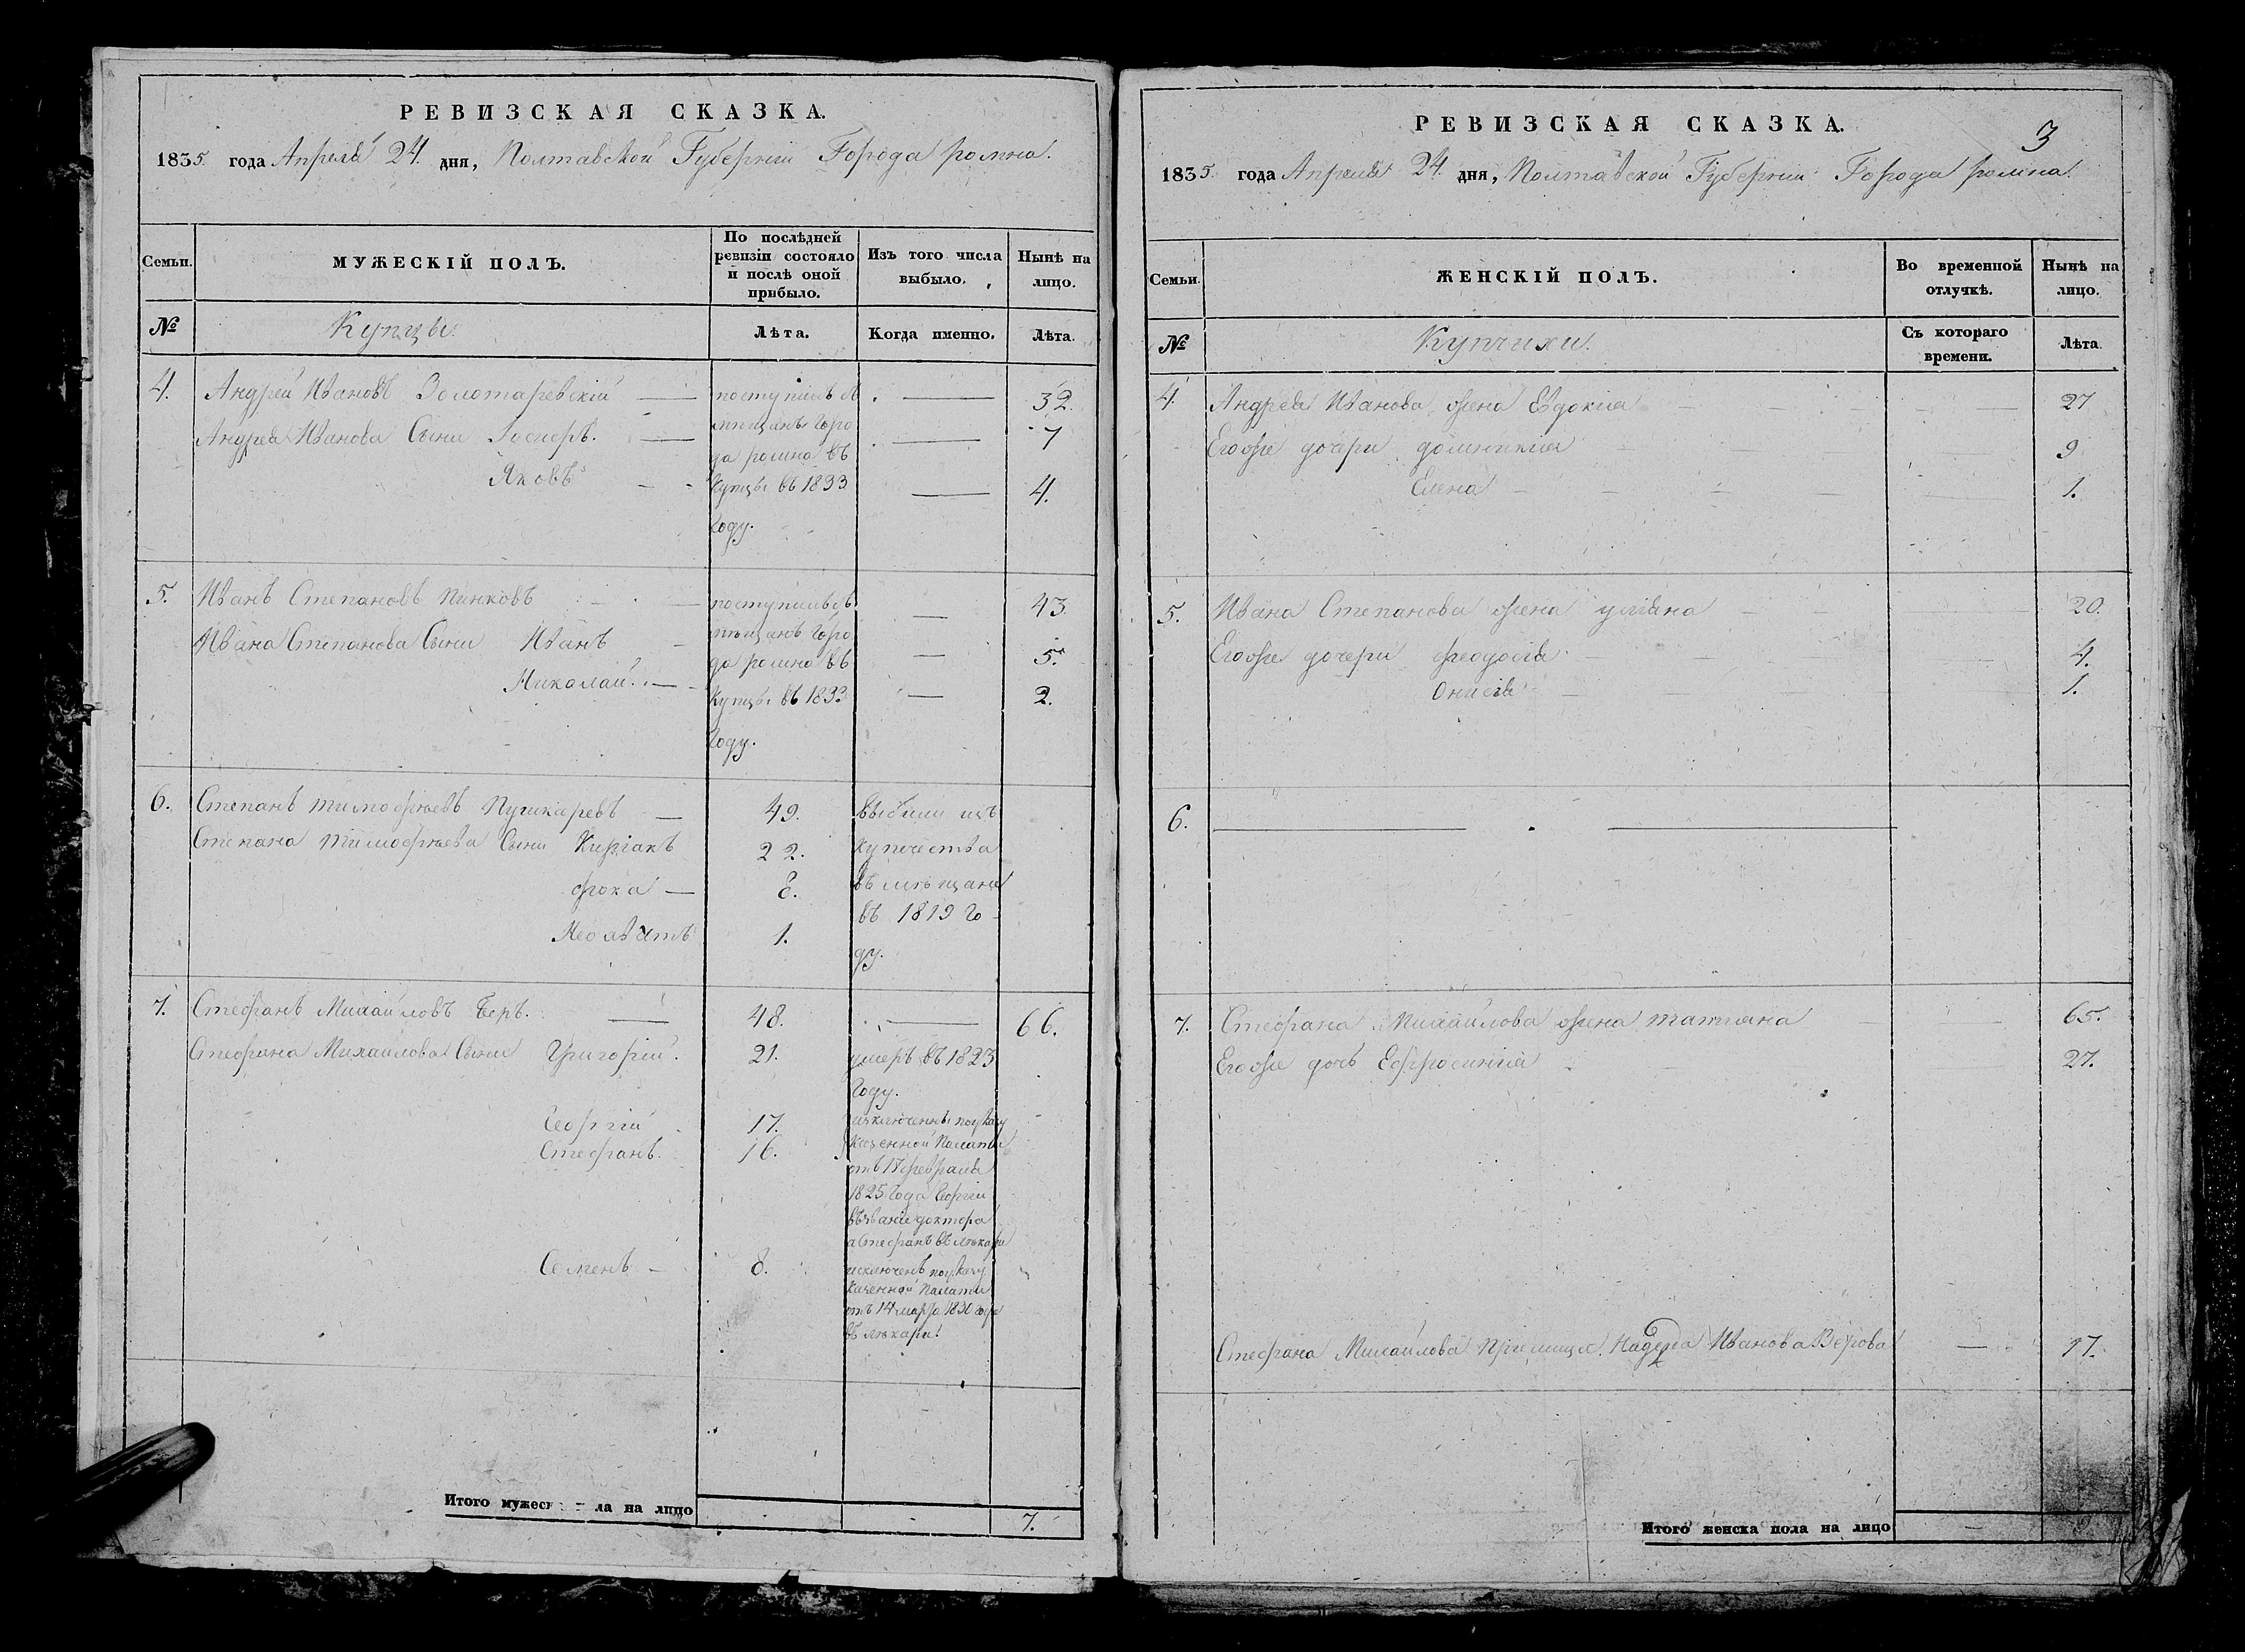 РЕВИЗСКАЯ СКАЗКА.
1835 года Апреля 24. дня, Полтавской Губернии Города ромна.
Семьи. МУЖЕСКІЙ ПОЛЪ. По послѣдней ревизіи состояло и послѣ оной прибыло. Изъ того числа выбыло. Нынѣ на лицо.
№ Купцы. Лѣта. Когда именно. Лѣта.
4. Андрей Ивановъ Золотаревскій — поступилъ съ — 32.
Андрея Иванова Сыни — мищанъ горо — 7
да ромна въ
Яковъ — купцы въ 1833 — 4.
году.
5. Иванъ Степановъ Пинковъ — поступилъ съ — 43.
Ивана Степанова Сыни Иванъ — мѣщанъ горо — 5.
да ромна въ
Николай. — купцы въ 1833 — 2.
году.
6. Степанъ тимофѣевъ Пушкаревъ — 49. выбили изъ
Степана тимофѣева Сыни Киріакъ 22. купечества
фока — 8. въ мѣщане
въ 1819 го-
1.
ду.
7. Стефанъ Михайловъ Беръ. — 48. — 66.
Стефана Михайлова Сыни Григорій. 21. умеръ въ 1823
году.
Георгій 17. изключенны по указу
Стефанъ. 16. казенной Палати
отъ 17 февраля
1825 года Георгій
въ званіе доктора
а Стефанъ въ лѣкари
Семенъ — 8. исключенъ по указу
казенной Палати
отъ 14 марта 1830 года
въ лѣкари.
Итого мужеск ла на лицо 7.
РЕВИЗСКАЯ СКАЗКА.
3
1835 года Апреля 24. дня, Полтавской Губернии Города ромна.
Семьи. ЖЕНСКІЙ ПОЛЪ. Во временной отлучкѣ. Нынѣ на лицо.
№ Купчихи. Съ котораго времени. Лѣта.
4. Андрея Иванова жена Евдокия — 27
Егоже дочери домникия — 9
Елена — 1.
5. Ивана Степанова жена улияна — 20.
Егоже дочери феодосія — 4.
Онисія — 1.
6. —
7. Стефана Михайлова жена татияна — 65.
Егоже дочь Ефросинія — 27.
Стефана Михайлова Приемица. Надежда Иванова — 17.
Итого женска пола на лицо — 9